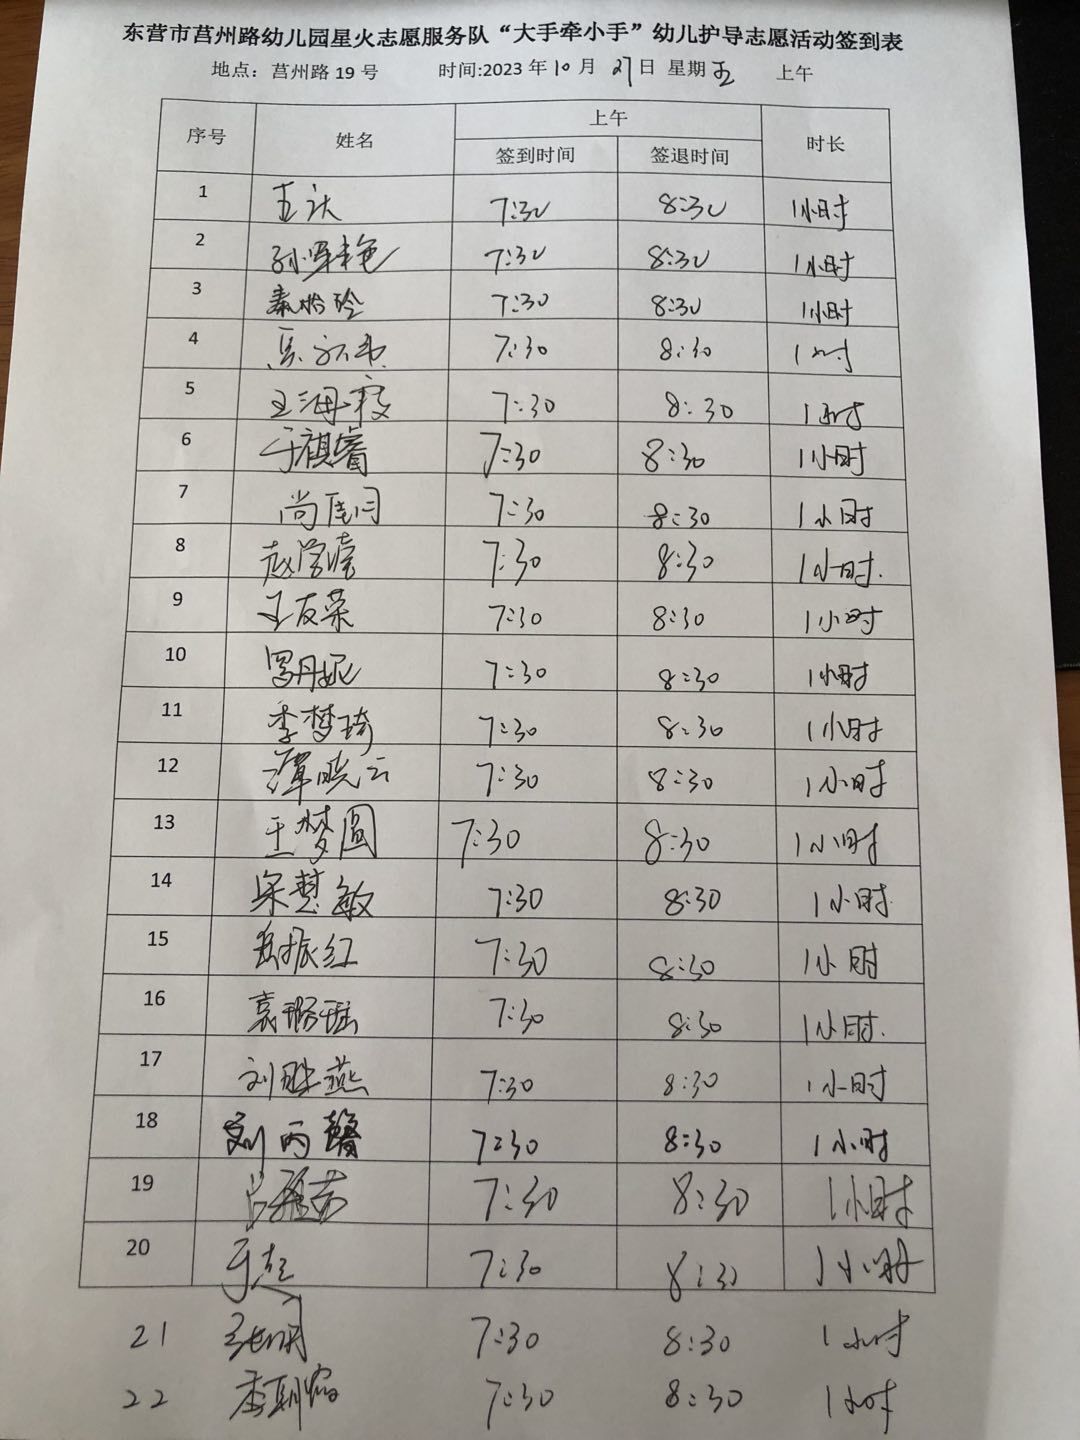 东营市莒州路幼儿园星火志愿服务队“大手牵小手”幼儿护导志愿活动签到表
地点：莒州路 19 号 时间:2023 年 10 月 27 日 星期 五 上午
序号 姓名 上午 时长
签到时间 签退时间
1 7:30 8:30 1小时
2 孙军艳 7:30 8:30 1小时
3 秦怡玲 7:30 8:30 1小时
4 7:30 8:30 1小时
5 王海霞 7:30 8:30 1小时
6 于祺睿 7:30 8:30 1小时
7 尚佳月 7:30 8:30 1小时
8 赵学莹 7:30 8:30 1小时.
9 王友荣 7:30 8:30 1小时
10 罗丹妮 7:30 8:30 1小时
11 季梦琦 7:30 8:30 1小时
12 潭晓云 7:30 8:30 1小时
13 王梦圆 7:30 8:30 1小时
14 宋慧敏 7:30 8:30 1小时
15 岳振红 7:30 8:30 1小时
16 袁璐瑶 7:30 8:30 1小时.
17 刘胜燕 7:30 8:30 1小时
18 刘丙 7:30 8:30 1小时
19 7:30 8:30 1小时
20 7:30 8:30 1小时
21 7:30 8:30 1小时
22 7:30 8:30 1小时